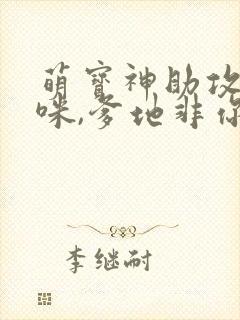 萌宝神助攻
咪,爹地非你
李继耐